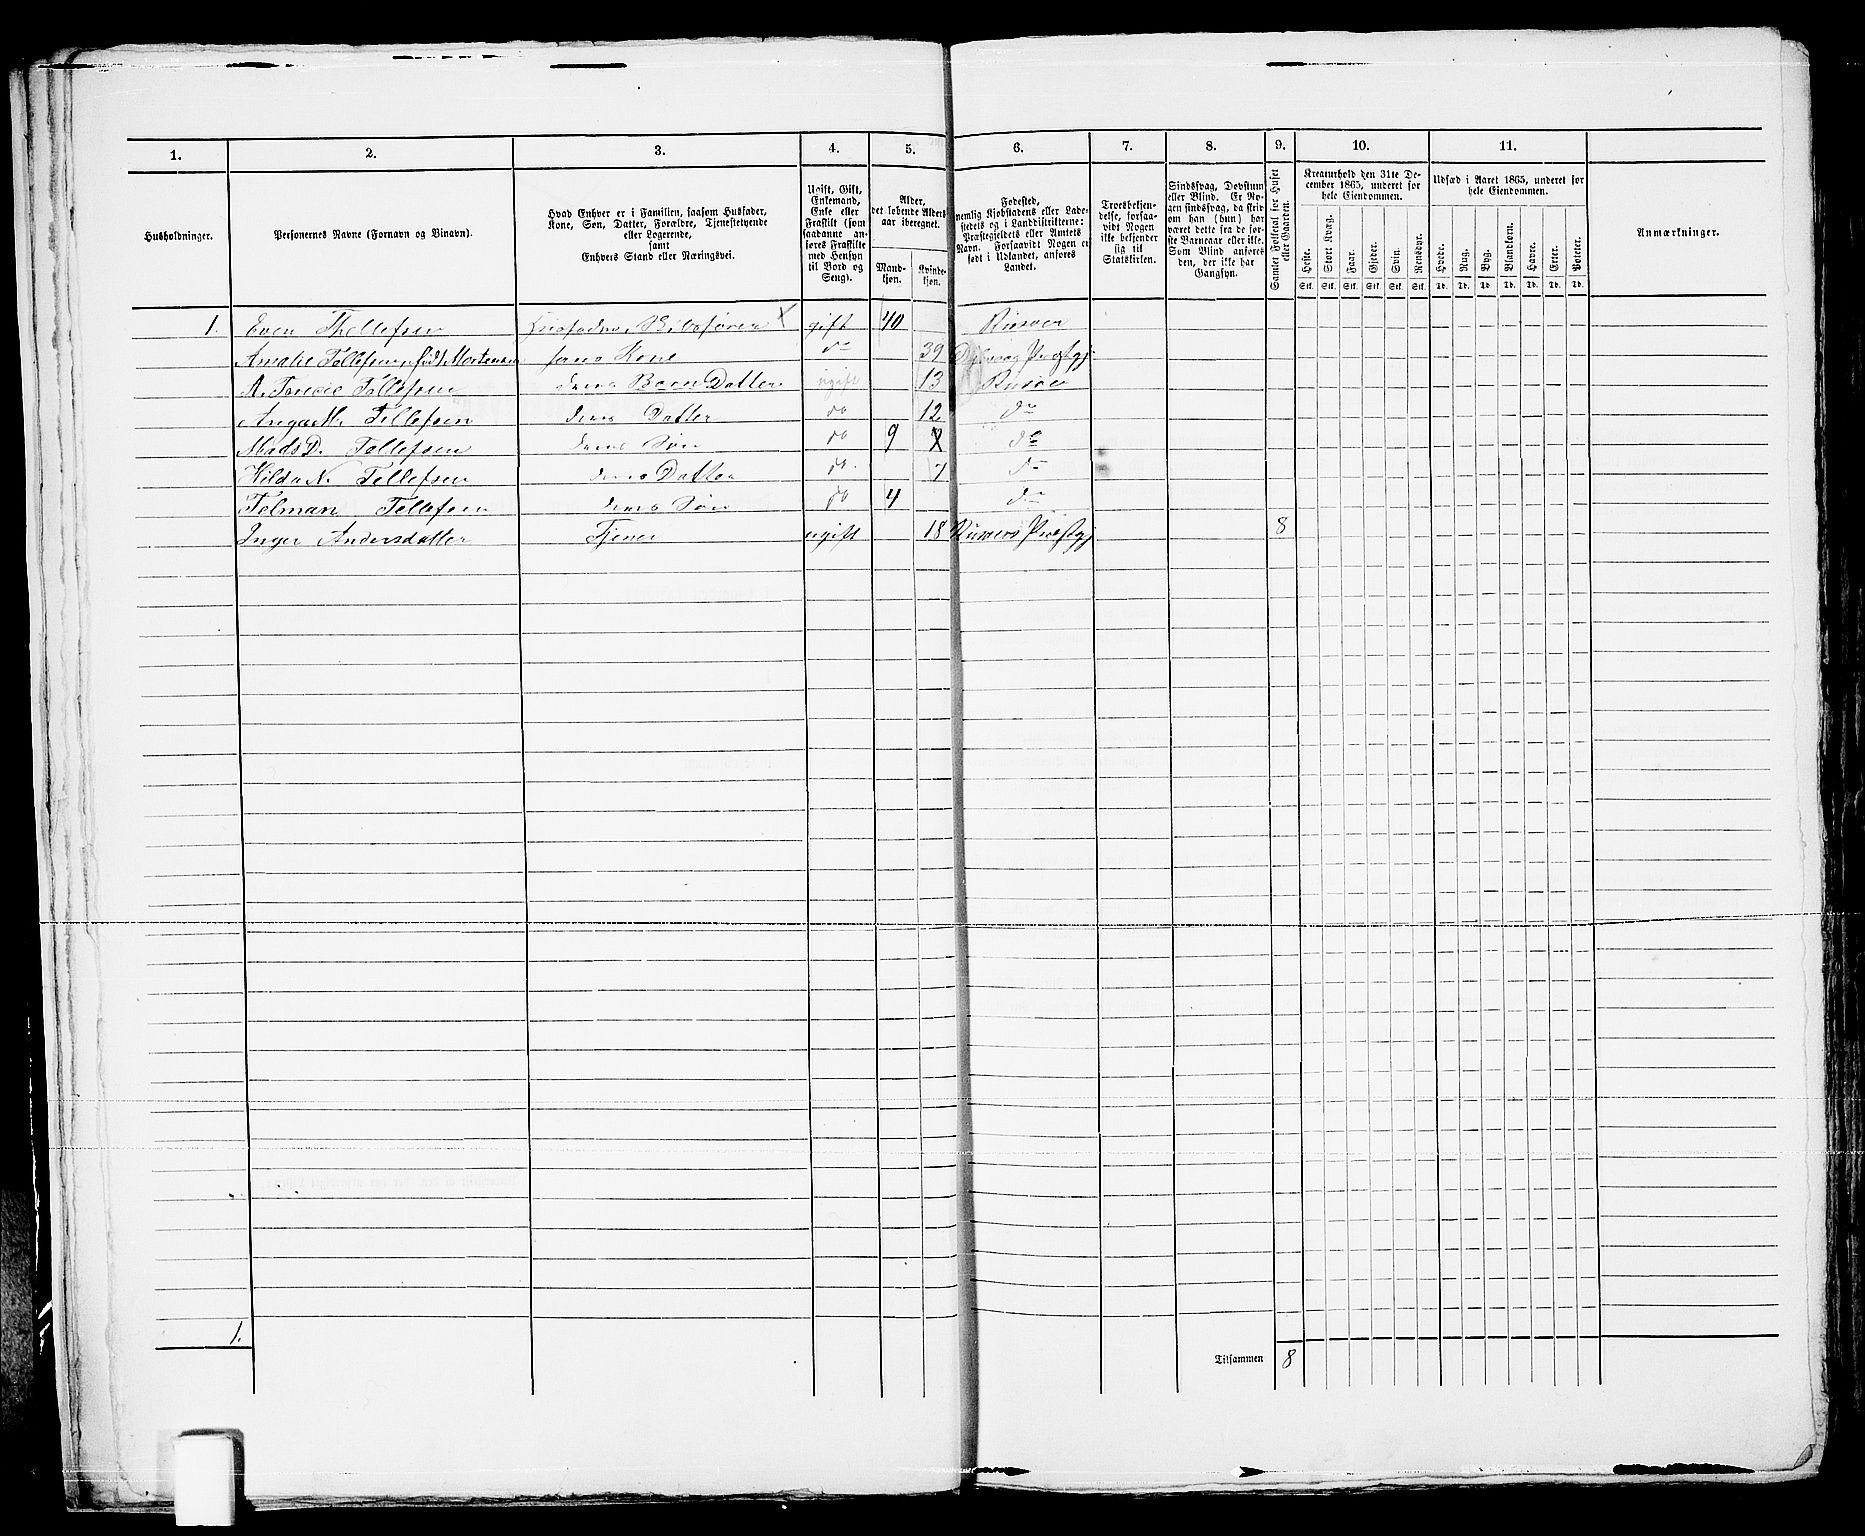 1. 2. 3. 4. 5. 6. 7. 8. 9. 10. 11.
Husholdninger.
Personernes Navne (Fornavn og Binavn).
Hvad Enhver er i Familien, saasom Husfader,
Kone, Søn, Datter, Forældre, Tjenestetyende
eller Logerende,
samt
Enhvers Stand eller Næringsvei.
Ugift, Gift,
Enkemand,
Enke eller
Fraskilt (som
saadanne an-
føres Fraskilte
med Hensyn
til Bord og
Seng).
Alder,
det løbende Alders-
aar iberegnet.
Mand-
kjøn.
Kvinde-
kjøn.
Fødested,
nemlig Kjøbstadens eller Lade-
stedets og i Landdistrikterne:
Præstegjeldets eller Amtets
Navn. Forsaavidt Nogen er
født i Udlandet, anføres
Landet.
Troesbekjen-
delse, forsaa-
vidt Nogen
ikke bekjender
sig til
Statskirken.
Sindssvag, Døvstum
eller Blind. Er No-
gen sindssvag, da skriv
om han (hun) har
været dette fra de før-
ste Barneaar eller ikke.
Som Blind anføres
den, der ikke har
Gangsyn.
Samlet Folketal for Huset
eller Gaarden.
Kreaturhold den 31te De-
cember 1865, underet for
hele Eiendommen.
Heste. Stort Kvæg. Faar. Gjeder. Svin. Rensdyr.
Stk. Stk. Stk. Stk. Stk. Stk.
Udsæd i Aaret 1865, underet for
hele Eiendommen.
Hvede. Rug. Byg. Blandkorn. Havre. Erter. Poteter.
Td. Td. Td. Td. Td. Td. Td.
Anmærkninger.
1. Even Thellefsen Husfader, Skibsfører gift 40 Riisøer
Amalie Tellefsen, født Mortensen hans Kone do 39 Dybvaag Præstgj
Tellefsen deres Barn Datter ugift 13 Riisøer
Anga M. Tellefsen deres Datter do 12 do
Mads D. Tellefsen deres Søn do 9 do
Hilda N. Tellefsen deres Datter do. 7 do
Telman Tellefsen deres Søn do 4 do
Inger Andersdatter Tjener ugift 18 Præstgj 8
1.
Tilsammen 8